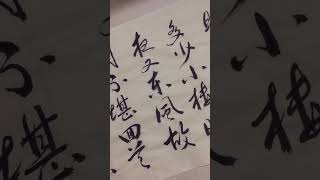 多少小楼
夜又东风故
不堪回首